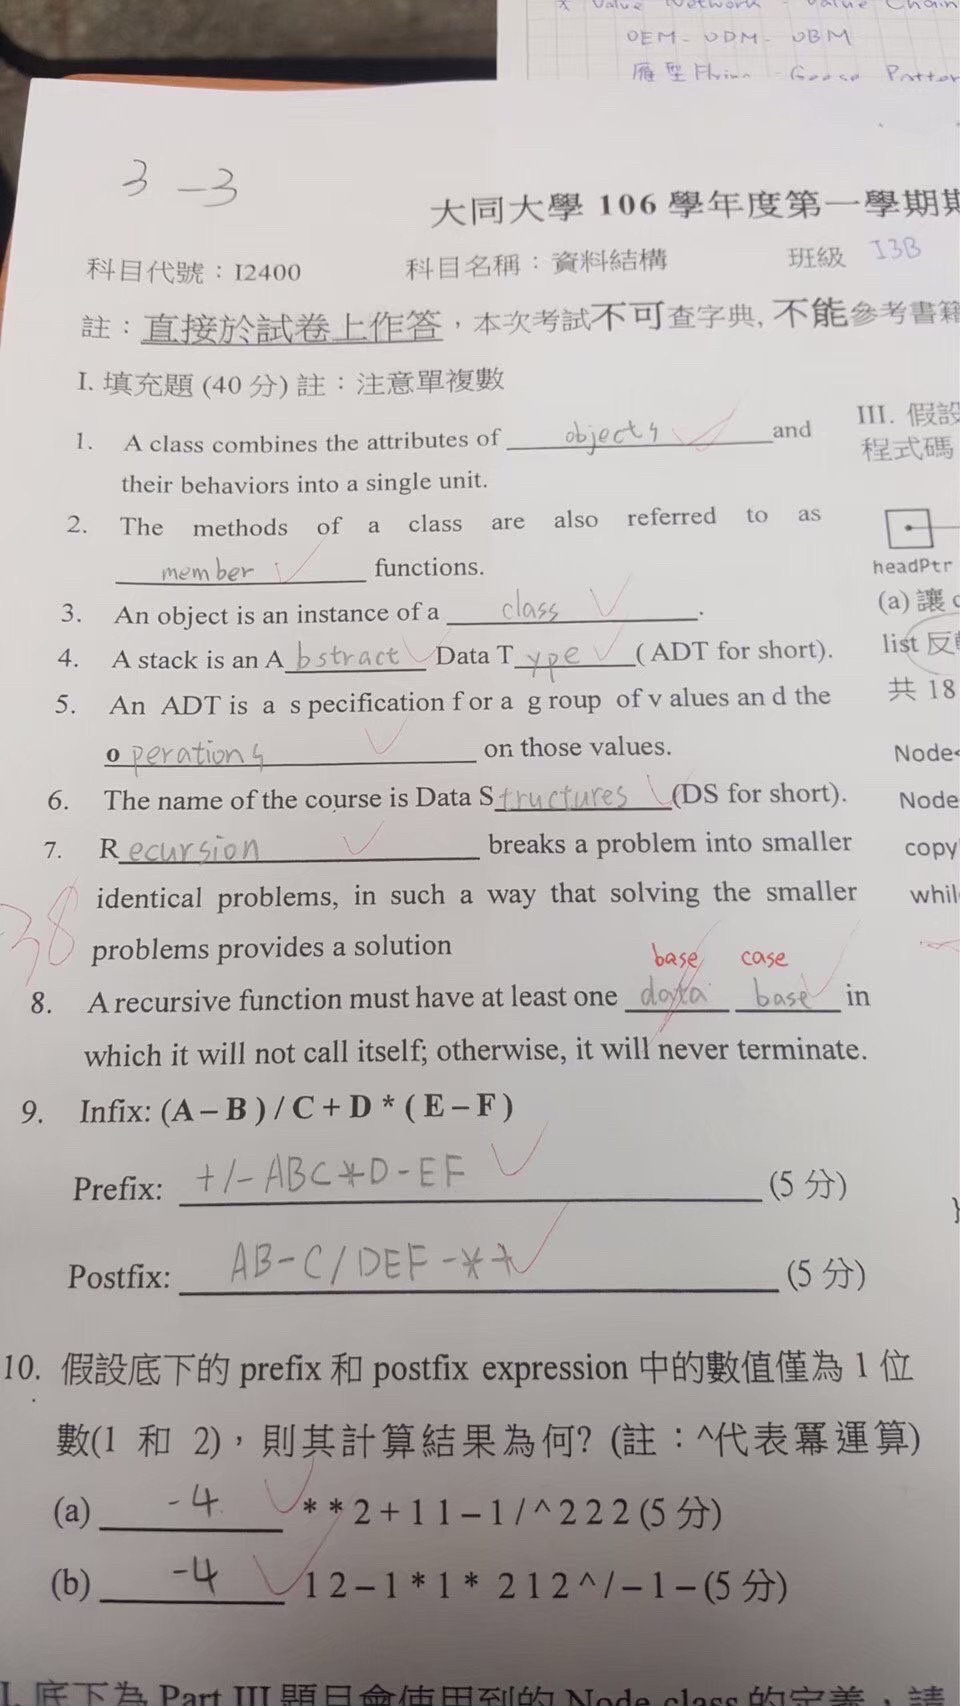 * Value Network - Value Chain
OEM - ODM - OBM
雁型 Flying - Geese Patter
3 - 3
大同大學 106 學年度第一學期期
科目代號：I2400 科目名稱：資料結構 班級 I3B
註：直接於試卷上作答，本次考試不可查字典, 不能參考書籍
I. 填充題 (40 分) 註：注意單複數
1. A class combines the attributes of objects and
their behaviors into a single unit.
2. The methods of a class are also referred to as
member functions.
3. An object is an instance of a class .
4. A stack is an Abstract Data Type ( ADT for short).
5. An ADT is a s pecification f or a g roup of v alues an d the
operations on those values.
6. The name of the course is Data Structures (DS for short).
7. Recursion breaks a problem into smaller
identical problems, in such a way that solving the smaller
problems provides a solution
-38
base case
8. A recursive function must have at least one data base in
which it will not call itself; otherwise, it will never terminate.
9. Infix: (A – B ) / C + D * ( E – F )
Prefix: +/-ABC*D-EF (5 分)
Postfix: AB-C/DEF-*+ (5 分)
10. 假設底下的 prefix 和 postfix expression 中的數值僅為 1 位
數(1 和 2)，則其計算結果為何? (註：^代表冪運算)
(a) -4 * * 2 + 1 1 – 1 / ^ 2 2 2 (5 分)
(b) -4 1 2 – 1 * 1 * 2 1 2 ^ / – 1 – (5 分)
I. 底下為 Part III 題目會使用到的 Node class 的定義，請
III. 假設
程式碼
headPtr
(a) 讓 c
list 反
共 18
Node<
Node
copy
while
}